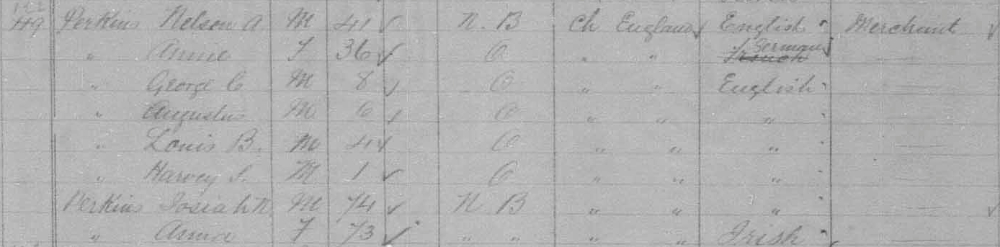 49 Perkins Nelson A M 41 N.B Ch England English Merchant
" Annie F 36 O " " German
" George C M 8 O " " English
" Augustus M 6 O " " "
" Louis B. M 4 O " " "
" Harvey S. M 1 O " " "
Perkins Josiah N. M 74 N B " " "
" Anna F 73 " " " " Irish